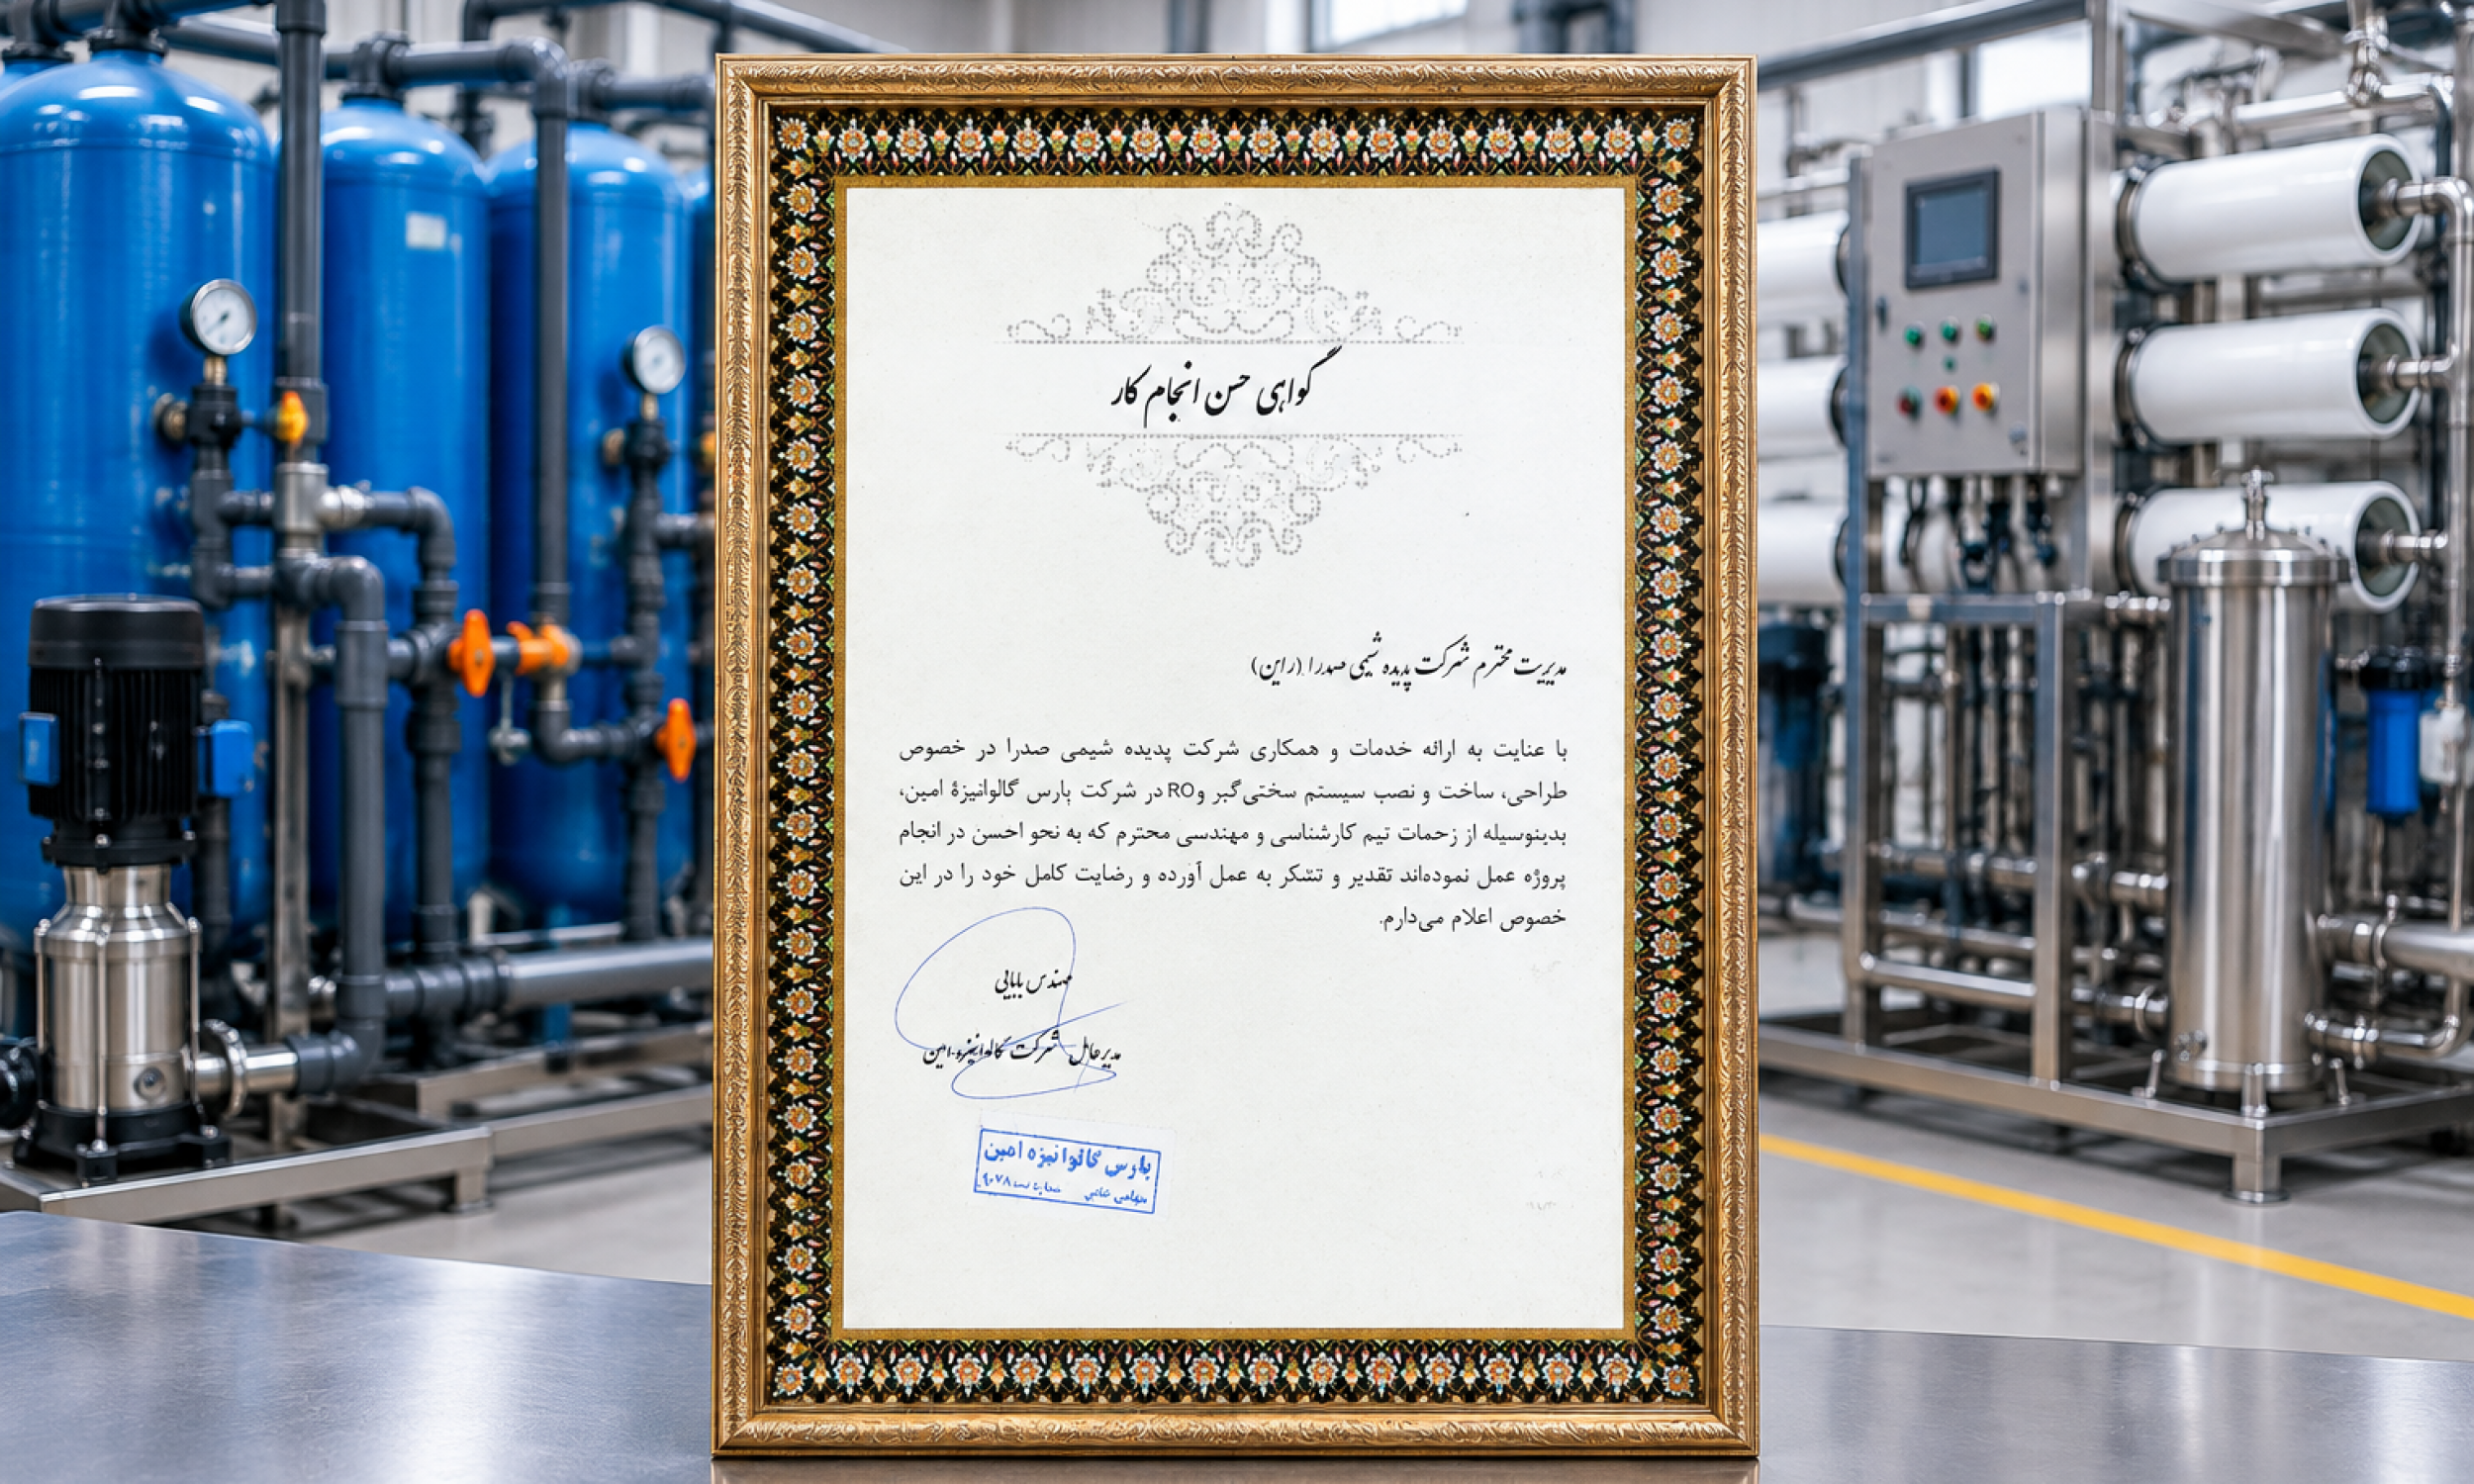 گواهی حسن انجام کار
مدیریت محترم شرکت پدیده شیمی صدرا (راین)
با عنایت به ارائه خدمات و همکاری شرکت پدیده شیمی صدرا در خصوص
طراحی، ساخت و نصب سیستم سختی‌گیر و RO در شرکت پارس گالوانیزهٔ امین،
بدینوسیله از زحمات تیم کارشناسی و مهندسی محترم که به نحو احسن در انجام
پروژه عمل نموده‌اند تقدیر و تشکر به عمل آورده و رضایت کامل خود را در این
خصوص اعلام می‌دارم.
مهندس بابایی
مدیرعامل شرکت گالوانیزه امین
پارس گالوانیزه امین
سهامی خاص